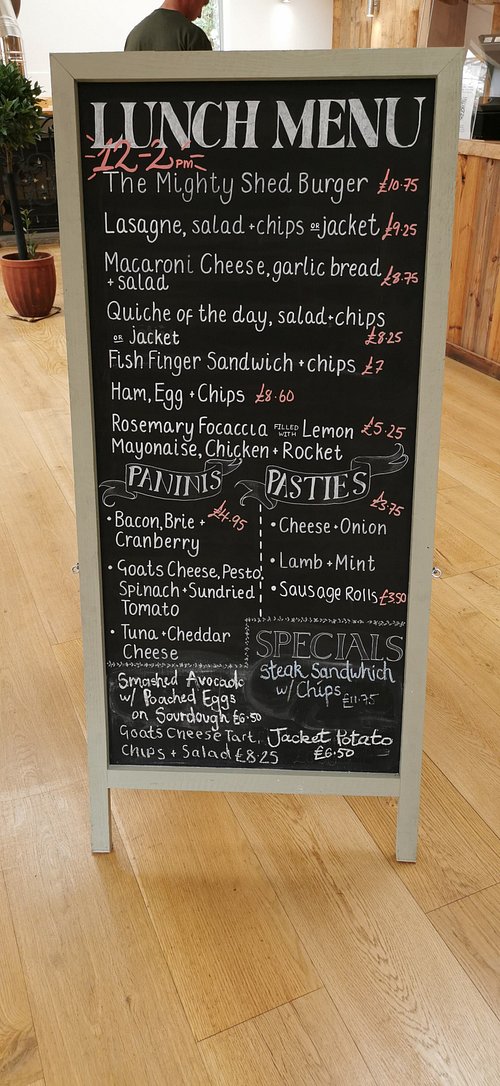 LUNCH MENU
12-2pm
The Mighty Shed Burger £10.75
Lasagne, salad + chips OR jacket £9.25
Macaroni Cheese, garlic bread
+ salad £8.75
Quiche of the day, salad + chips
OR jacket £8.25
Fish Finger Sandwich + chips £7
Ham, Egg + Chips £8.60
Rosemary Focaccia FILLED WITH Lemon £5.25
Mayonaise, Chicken + Rocket
PANINIS
£4.95
• Bacon, Brie +
Cranberry
• Goats Cheese, Pesto
Spinach + Sundried
Tomato
• Tuna + Cheddar
Cheese
PASTIES
£3.75
• Cheese + Onion
• Lamb + Mint
• Sausage Rolls £3.50
SPECIALS
Steak Sandwhich
w/ Chips £11.75
Smashed Avocado
w/ Poached Eggs
on Sourdough £6.50
Goats Cheese Tart,
Chips + Salad £8.25
Jacket Potato
£6.50